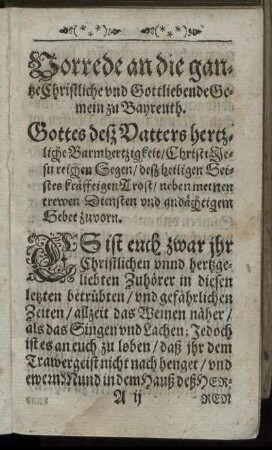 Vorrede an die gan-
tze Christliche vnd Gottliebende Ge-
mein zu Bayreuth.
Gottes desz Vatters hertz-
liche Barmhertzigkeit / Christi Je-
su reichen Segen / desz heiligen Gei-
stes kräfftigen Trost / neben meinen
trewen Diensten vnd andächtigem
Gebet zuvorn.
ES ist euch zwar jhr
Christlichen vnnd hertzge-
liebten Zuhörer in diesen
letzten betrübten / vnd gefährlichen
Zeiten / allzeit das Weinen näher /
als das Singen vnd Lachen: Jedoch
ist es an euch zu loben / daß jhr dem
Trawergeist nicht nach henget / vnd
ewern Mund in dem Hauß deß HER-
A ij
REN